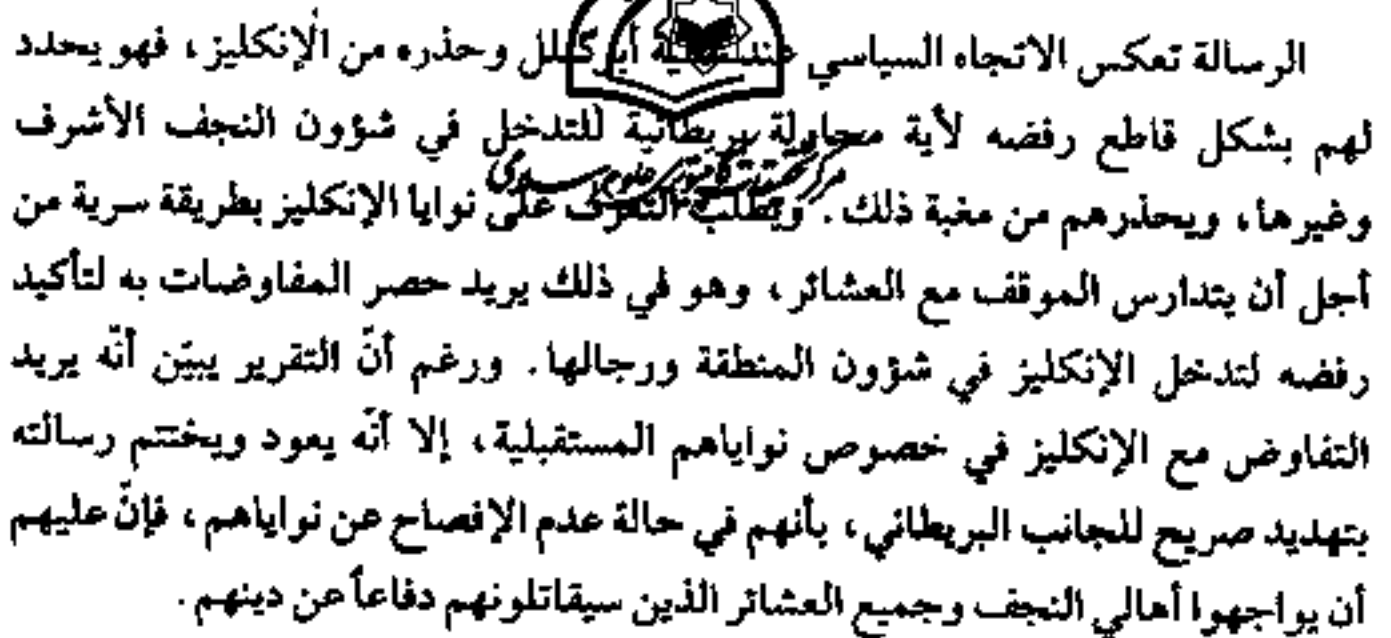 الرسالة تعكس الاتجاه السياسي عند عطية أبو كلل وحذره من الإنكليز، فهو يحدد
لهم بشكل قاطع رفضه لأية محاولة بريطانية للتدخل في شؤون النجف الأشرف
وغيرها، ويحذرهم من مغبة ذلك. ويطلب التعرف على نوايا الإنكليز بطريقة سرية من
أجل أن يتدارس الموقف مع العشائر، وهو في ذلك يريد حصر المفاوضات به لتأكيد
رفضه لتدخل الإنكليز في شؤون المنطقة ورجالها. ورغم أنّ التقرير يبيّن أنّه يريد
التفاوض مع الإنكليز في خصوص نواياهم المستقبلية، إلا أنّه يعود ويختتم رسالته
بتهديد صريح للجانب البريطاني، بأنهم في حالة عدم الإفصاح عن نواياهم، فإنّ عليهم
أن يواجهوا أهالي النجف وجميع العشائر الذين سيقاتلونهم دفاعاً عن دينهم.